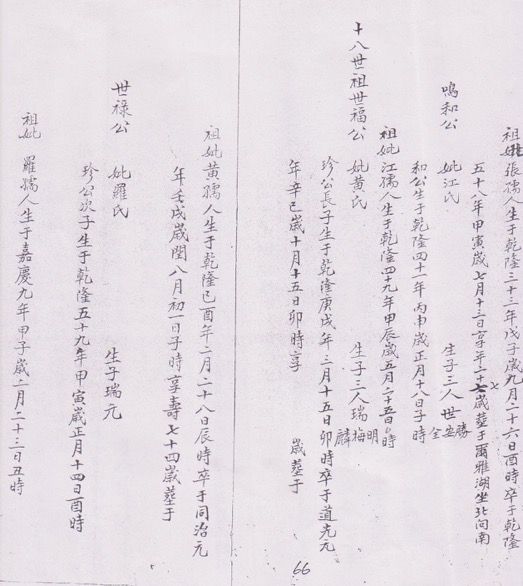 祖妣張孺人生于乾隆三十三年戊子歲九月二十六日酉時卒于乾隆
五十八年甲寅歲七月十三日享年二十七歲塟于爾雅湖坐北向南
鳴和公 妣江氏 生子三人世勝安全
和公生于乾隆四十一年丙申歲正月十八日子時
祖妣江孺人生于乾隆四十九年甲辰歲五月二十五日時
十八世祖世福公 妣黃氏 生子三人瑞明梅麟
珍公長子生于乾隆庚戌年三月十五日卯時卒于道光元
年辛巳歲十月十五日卯時享 歲塟于
祖妣黃孺人生于乾隆己酉年二月二十八日辰時卒于同治元
年壬戌歲閏八月初一日子時享壽七十四歲塟于
世祿公 妣羅氏 生子瑞元
珍公次子生于乾隆五十九年甲寅歲正月十四日酉時
祖妣 羅孺人生于嘉慶九年甲子歲二月二十三日丑時
66